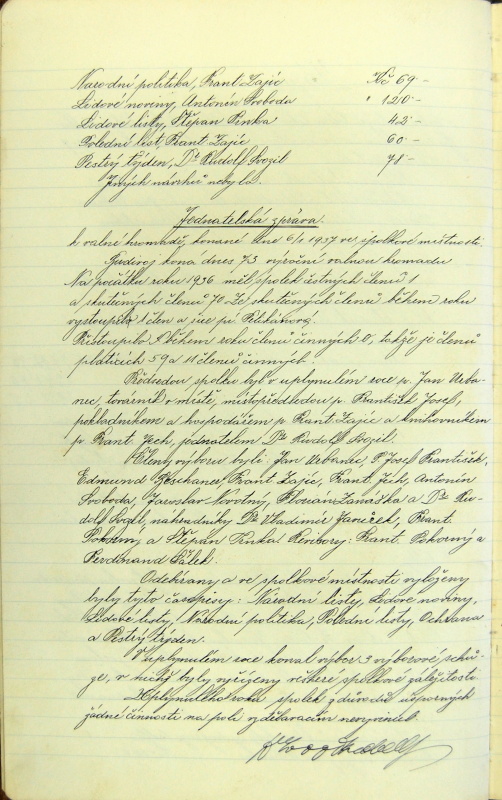 Národní politika, Frant. Zajíc Kč 69.-
Lidové noviny, Antonín Svoboda " 120.-
Lidové listy, Štěpan Pinka 42.-
Polední list, Frant. Zajíc 60.-
Pestrý týden, Dr. Rudolf Svozil 78.-
Jiných návrhů nebylo.
Jednatelská zpráva.
k valné hromadě, konané dne 6/1 1937 ve spolkové místnosti.
kona dnes 73 výroční valnou hromadu
Na počátku roku 1936 měl spolek čestných členů 1
a skutečných členů 70 Ze skutečných členů během roku
vystoupila 1 člen a sice pí.
Přistoupilo během roku členů činných 0, takže je členů
platících 59 a 11 členů činných.
Předsedou spolku byl v uplynulém roce p. Jan Urba-
nec, továrník v místě, místopředsedou p. František Josef,
pokladníkem a hospodářem p. Frant. Zajíc a knihovníkem
p. Frant. Jech, jednatelem Dr. Rudolf Svozil.
Členy výboru byli: Jan Urbanec, P. Josef František,
Edmund Frant. Zajíc, Frant. Jech, Antonín
Svoboda, Jaroslav Novotný, Florián Zanáška a Dr. Ru-
dolf Svozil, náhradníky Dr. Vladimír Janeček, Frant.
Pokorný, a Štěpan Pinka. Revisory: Frant. Pokorný a
Ferdinand Válek.
Odebrány a ve spolkové místnosti vyloženy
byly tyto časopisy: Národní listy, Lidové noviny,
Lidové listy, Národní politika, Polední listy, Ochrana
a Pestrý týden.
V uplynulém roce konal výbor 3 výborové schů-
ze, v nichž byly vyřízeny veškeré spolkové záležitosti
Uplynulého roku spolek z důvodů úsporných
žádné činnosti na poli vzdělávacím nevyvinul.